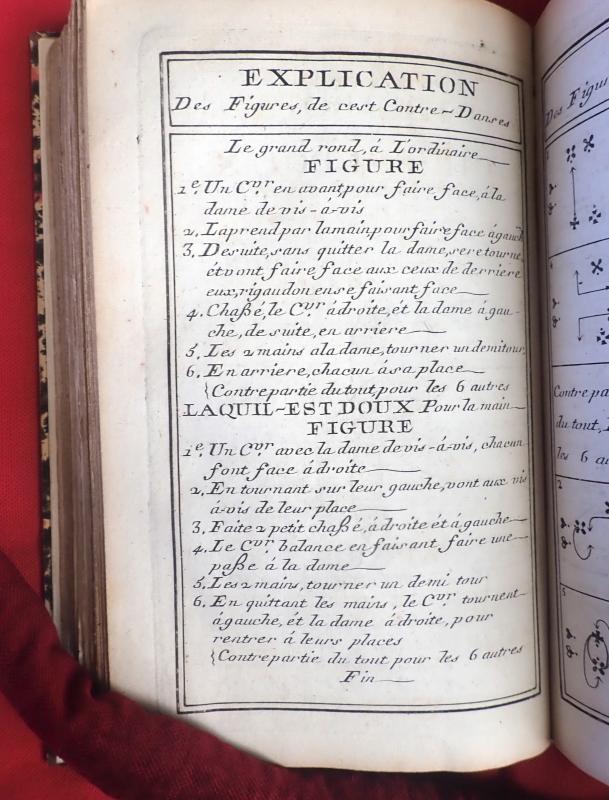 EXPLICATION
Des Figures, de cest Contre-Danses
Le grand rond, á L'ordinaire
FIGURE
1e. Un Cvr. en avant, pour faire face, á la
dame de vis-á-vis
2. La prend par la main, pour faire face á gauch
3. De suite, sans quitter la dame, se re tourne,
ét vont faire face aux ceux de derriere
eux, rigaudon en se faisant face
4. Chaßé, le Cvr. á droite, ét la dame á gau-
che, de suite, en arriere
5. Les 2 mains a la dame, tourner un demi tour
6. En arriere, chacun á sa place
{Contre partie du tout, pour les 6 autres
LAQUIL-EST DOUX Pour la main
FIGURE
1e. Un Cvr. avec la dame de vis-á-vis, chacun
font face á droite
2. En tournant sur leur gauche, vont aux vis
á-vis de leur place
3. Faite 2 petit chaßé, á droite ét á gauche
4. Le Cvr. balance en faisant faire une
paße á la dame
5. Les 2 mains, tourner un demi tour
6. En quittant les mains, le Cvr. tournent
á gauche, ét la dame á droite, pour
rentrer á leurs places
{Contre partie du tout pour les 6 autres
Fin
Des Figu
1
Contre pa
du tout,
les 6 au
2